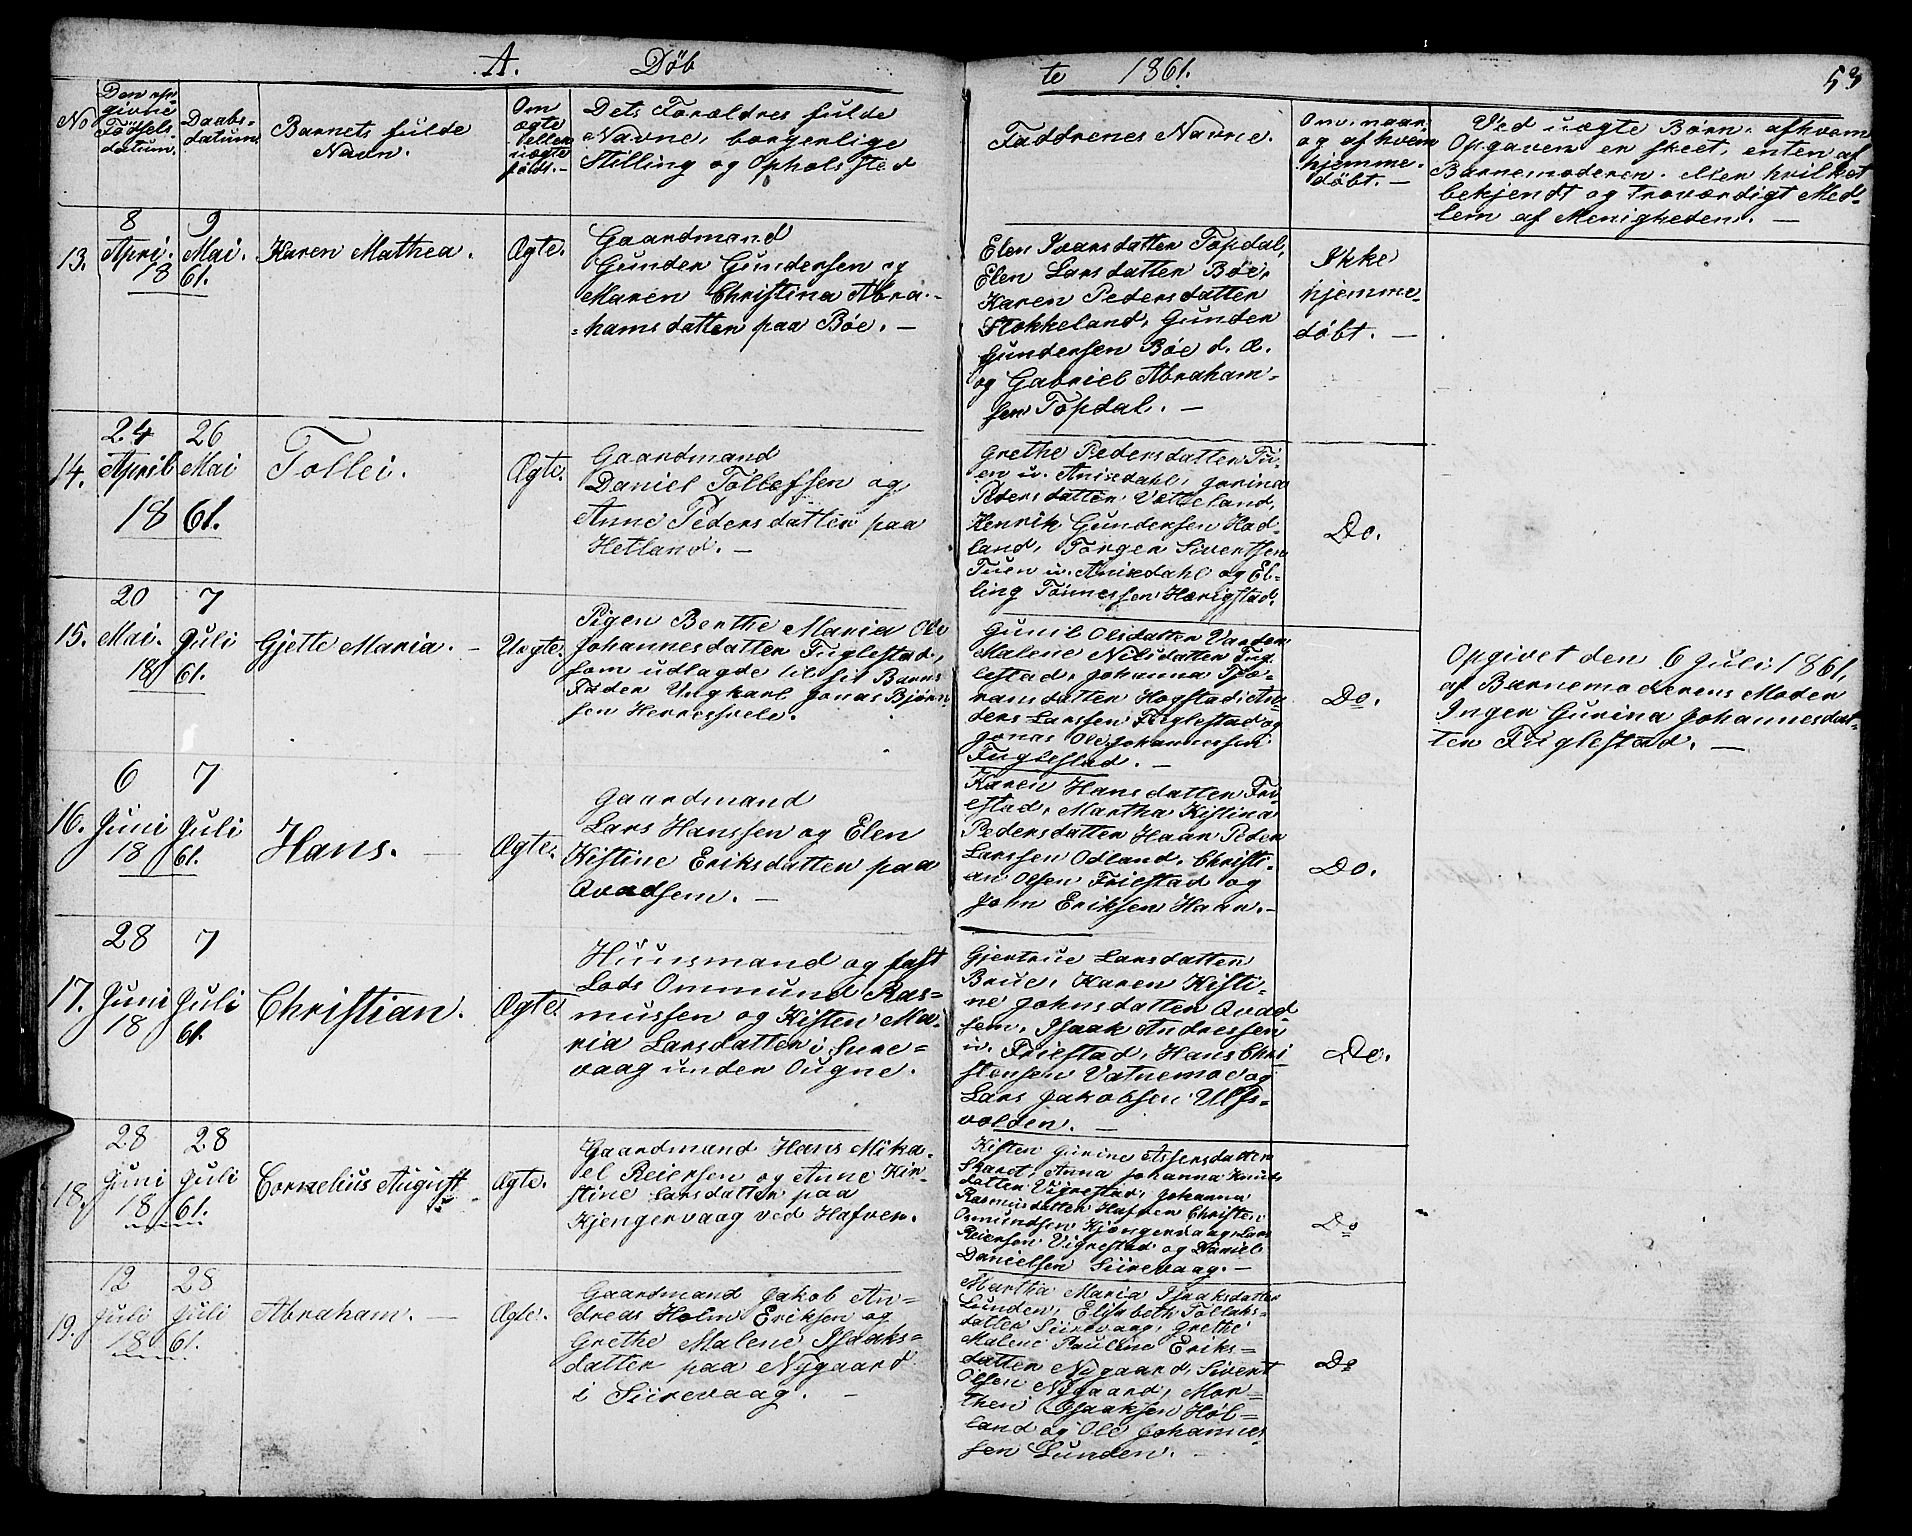 A. Døb
te 1861.
53
No
Den opgivne Fødselsdatum.
Daabsdatum.
Barnets fulde Navn.
Om ægte eller uægte født.—
Dets Forældres fulde
Navne, borgerlige
Stilling og Opholssted
Faddrenes Navne.
Om, naar og af hvem hjemmedøbt.—
Ved uægte Børn, afhvem
Opgaven er skeet, enten af
Barnemoderen, eller hvilket
bekjendt og troværdigt Med-
lem af Menigheden. —
13.
8 April 1861.
9 Mai.
Karen Mathea.
Ægte.
Gaardmand
Gunder Gundersen og
Maren Christina Abra-
hamsdatter paa Bøe. —
Elen Ivarsdatter Topdal,
Elen Larsdatter Bøe,
Karen Pedersdatter
Stokkeland, Gunder
Gundersen Bøe d. Æ.
og Gabriel Abraham-
sen Topdal. —
Ikke
hjemme-
døbt. —
14.
24 April 1861.
26 Mai
Tollei.
Ægte.
Gaardmand
Daniel Tollefsen og
Anne Pedersdatter paa
Hetland. —
Grethe Pedersdatter Tu-
en u. Anisdahl, Gurina
Pedersdatter Vetteland,
Henrik Gundersen Had-
land, Torger Sivertsen
Tuen u. Anisdahl og El-
ling Tønnessen Hærigstad.
Do.
15.
20 Mai. 1861.
7 Juli
Gjette Maria. —
Uægte.
Pigen Berthe Maria Ole
Johannesdatter Fuglestad,
som udlagde til sit Barns
Fader Ungkarl Jonas Bjørn-
sen Herresvele.
Gunil Olsdatter Varden
Malene Nilsdatter Fug-
lestad, Johanna Tho-
ramsdatter Hogstad, An-
ders Larssen Fuglestad og
Jonas Ole Johannessen
Fuglestad. —
Do.
Opgivet den 6 Juli 1861,
af Barnemoderens Moder
Inger Gurina Johannesdat-
ter Fuglestad. —
16.
6 Juni 1861.
7 Juli
Hans. —
Ægte.
Gaardmand
Lars Hanssen og Elen
Kistine Eriksdatter paa
Qvadsem. —
Karen Hansdatter Fri-
estad, Martha Kistina
Pedersdatter Haar Peder
Larssen Odland, Christi-
an Olsen Friestad og
John Eriksen Haar. —
Do.
17.
28 Juni 1861.
7 Juli
Christian.
Ægte.
Huusmand og fast
Lods Ommund Ras-
mussen og Kisten Ma-
ria Larsdatter i Sire-
vaag under Ougne.
Gjertrue Larsdatter
Brue, Karen Kisti-
ne Johnsdatter Qvad
sem, Isaak Andressen
u. Friestad, Hans Chri
stensen Vatnemoe og
Lars Jakobsen Ulfs-
volden. —
Do.
18.
28 Juni 1861.
28 Juli
Cornelius August.
Ægte.
Gaardmand Hans Mika-
el Reiersen og Anne Kir-
stine Larsdatter paa
Kjengervaag ved Hafven.
Kisten Gurine Assersdatter
Skaret, Anna Johanna Knuds
datter Vigrestad, Johanna
Rasmusdatter Hafven Christen
Osmundsen Kjængervaag, Lars
Reiersen Vigrestad og Daniel
Danielsen Siirevaag. —
Do
19.
12 Juli 1861.
28 Juli
Abraham. —
Ægte.
Gaardmand Jakob An-
dreas Holm Eriksen og
Grethe Malene Isaaks-
datter paa Nygaard
i Siirevaag. —
Martha Maria Isaaksdatter
Lunden, Elisabeth Tollaks-
datter Siirevaag, Grethe
Malene Pauline Eriks-
datter Nygaard, Sivert
Olsen Nygaard, Mor-
then Isaaksen Høl-
land og Ole Johannes
sen Lunden. —
Do